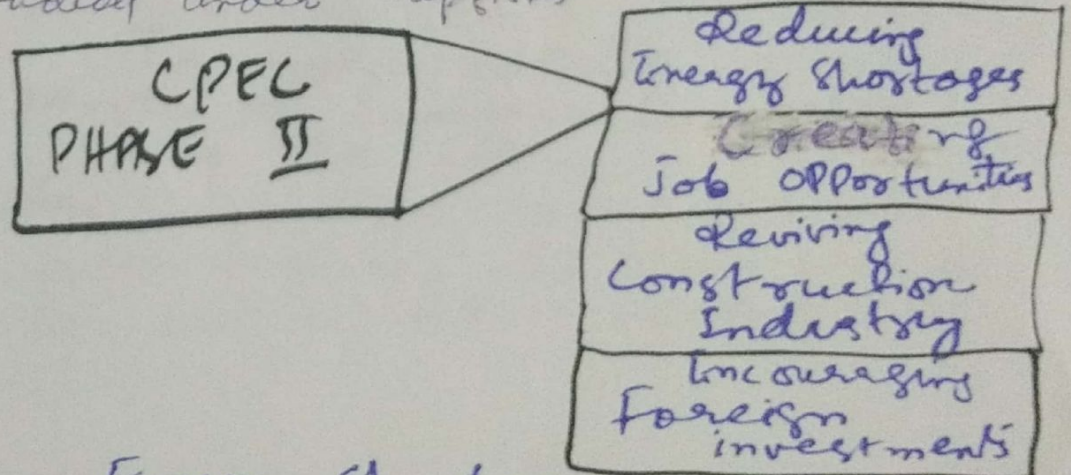 under
CPEC
PHASE II
Reducing
Energy Shortages
Creating
Job Opportunities
Reviving
Construction
Industry
Encouraging
Foreign
investments